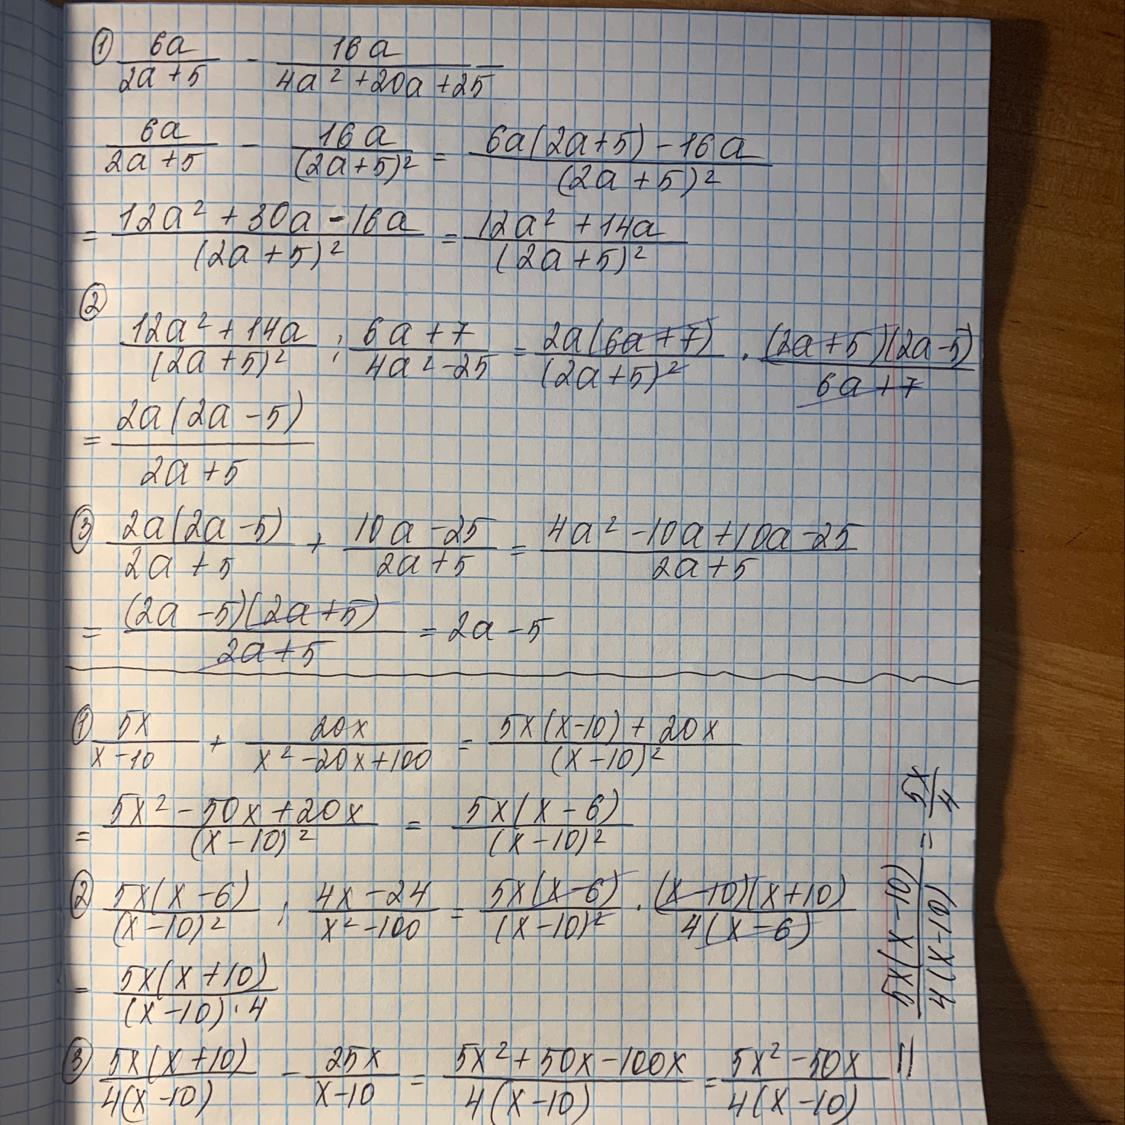 ① 6a/(2a+5) - 16a/(4a²+20a+25)
6a/(2a+5) - 16a/(2a+5)² = (6a(2a+5)-16a)/(2a+5)²
= (12a²+30a-16a)/(2a+5)² = (12a²+14a)/(2a+5)²
②
(12a²+14a)/(2a+5)² : (6a+7)/(4a²-25) = 2a(6a+7)/(2a+5)² · (2a+5)(2a-5)/(6a+7)
= 2a(2a-5)/(2a+5)
③ 2a(2a-5)/(2a+5) + (10a-25)/(2a+5) = (4a²-10a+10a-25)/(2a+5)
= (2a-5)(2a+5)/(2a+5) = 2a-5
① 5x/(x-10) + 20x/(x²-20x+100) = (5x(x-10)+20x)/(x-10)²
= (5x²-50x+20x)/(x-10)² = 5x(x-6)/(x-10)²
② 5x(x-6)/(x-10)² : (4x-24)/(x²-100) = 5x(x-6)/(x-10)² · (x-10)(x+10)/4(x-6)
= 5x(x+10)/(x-10)·4
③ 5x(x+10)/4(x-10) - 25x/(x-10) = (5x²+50x-100x)/4(x-10) = (5x²-50x)/4(x-10) =
5x(x-10)/4(x-10) = 5x/4